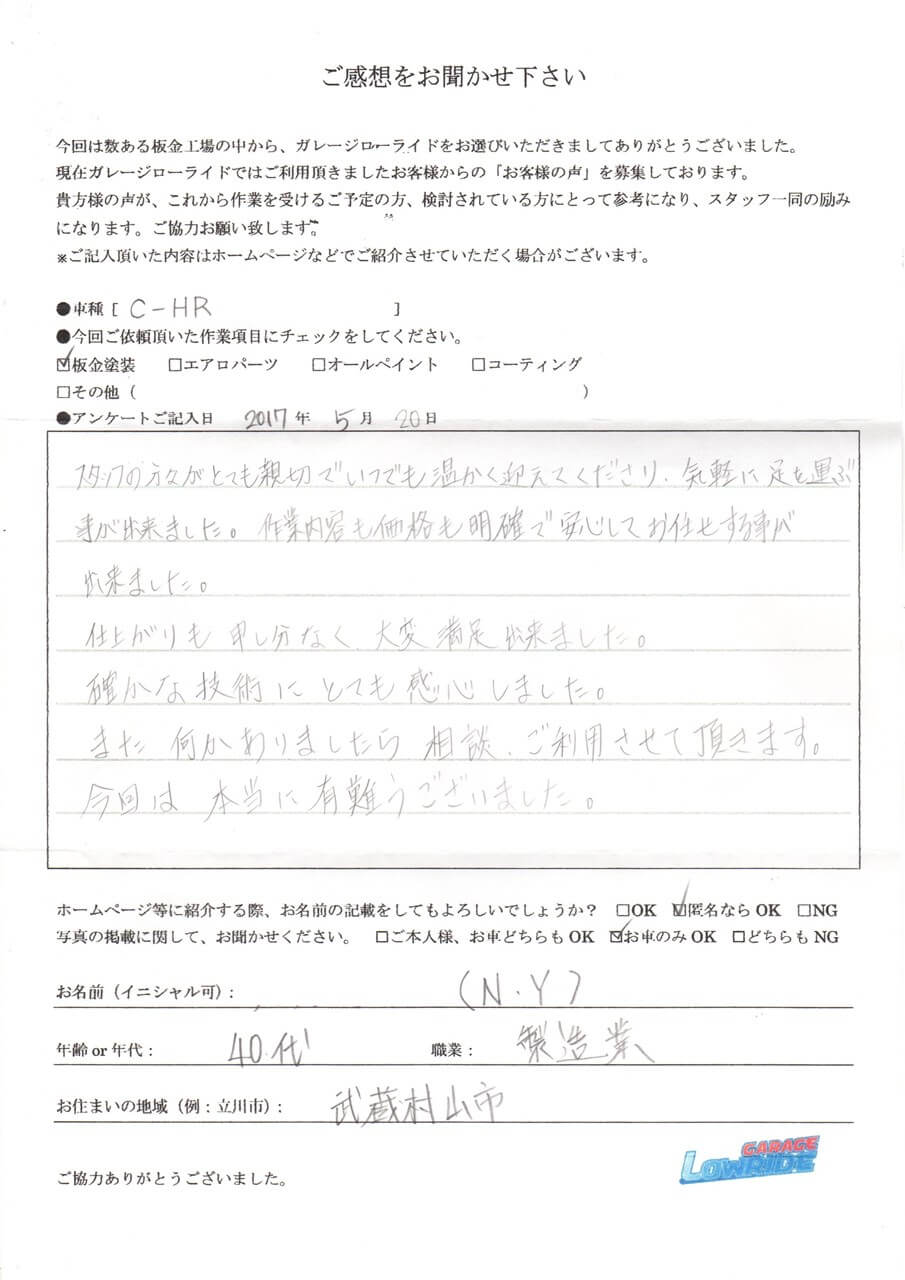 ご感想をお聞かせ下さい
今回は数ある板金工場の中から、ガレージローライドをお選びいただきましてありがとうございました。
現在ガレージローライドではご利用頂きましたお客様からの「お客様の声」を募集しております。
貴方様の声が、これから作業を受けるご予定の方、検討されている方にとって参考になり、スタッフ一同の励み
になります。ご協力お願い致します。
※ご記入頂いた内容はホームページなどでご紹介させていただく場合がございます。
●車種 [ C-HR ]
●今回ご依頼頂いた作業項目にチェックをしてください。
☑板金塗装 □エアロパーツ □オールペイント □コーティング
□その他 ( )
●アンケートご記入日 2017年 5月 20日
スタッフの方々がとても親切でいつでも温かく迎えてくださり、気軽に足を運ぶ
事が出来ました。作業内容も価格も明確で安心してお任せする事が
出来ました。
仕上がりも申し分なく、大変満足出来ました。
確かな技術にとても感心しました。
また何かありましたら相談、ご利用させて頂きます。
今回は本当に有難うございました。
ホームページ等に紹介する際、お名前の記載をしてもよろしいでしょうか? □OK ☑匿名なら OK □NG
写真の掲載に関して、お聞かせください。 □ご本人様、お車どちらも OK ☑お車のみ OK □どちらも NG
お名前（イニシャル可）: (N.Y)
年齢 or 年代： 40代 職業： 製造業
お住まいの地域（例：立川市）: 武蔵村山市
GARAGE
LOWRIDE
ご協力ありがとうございました。